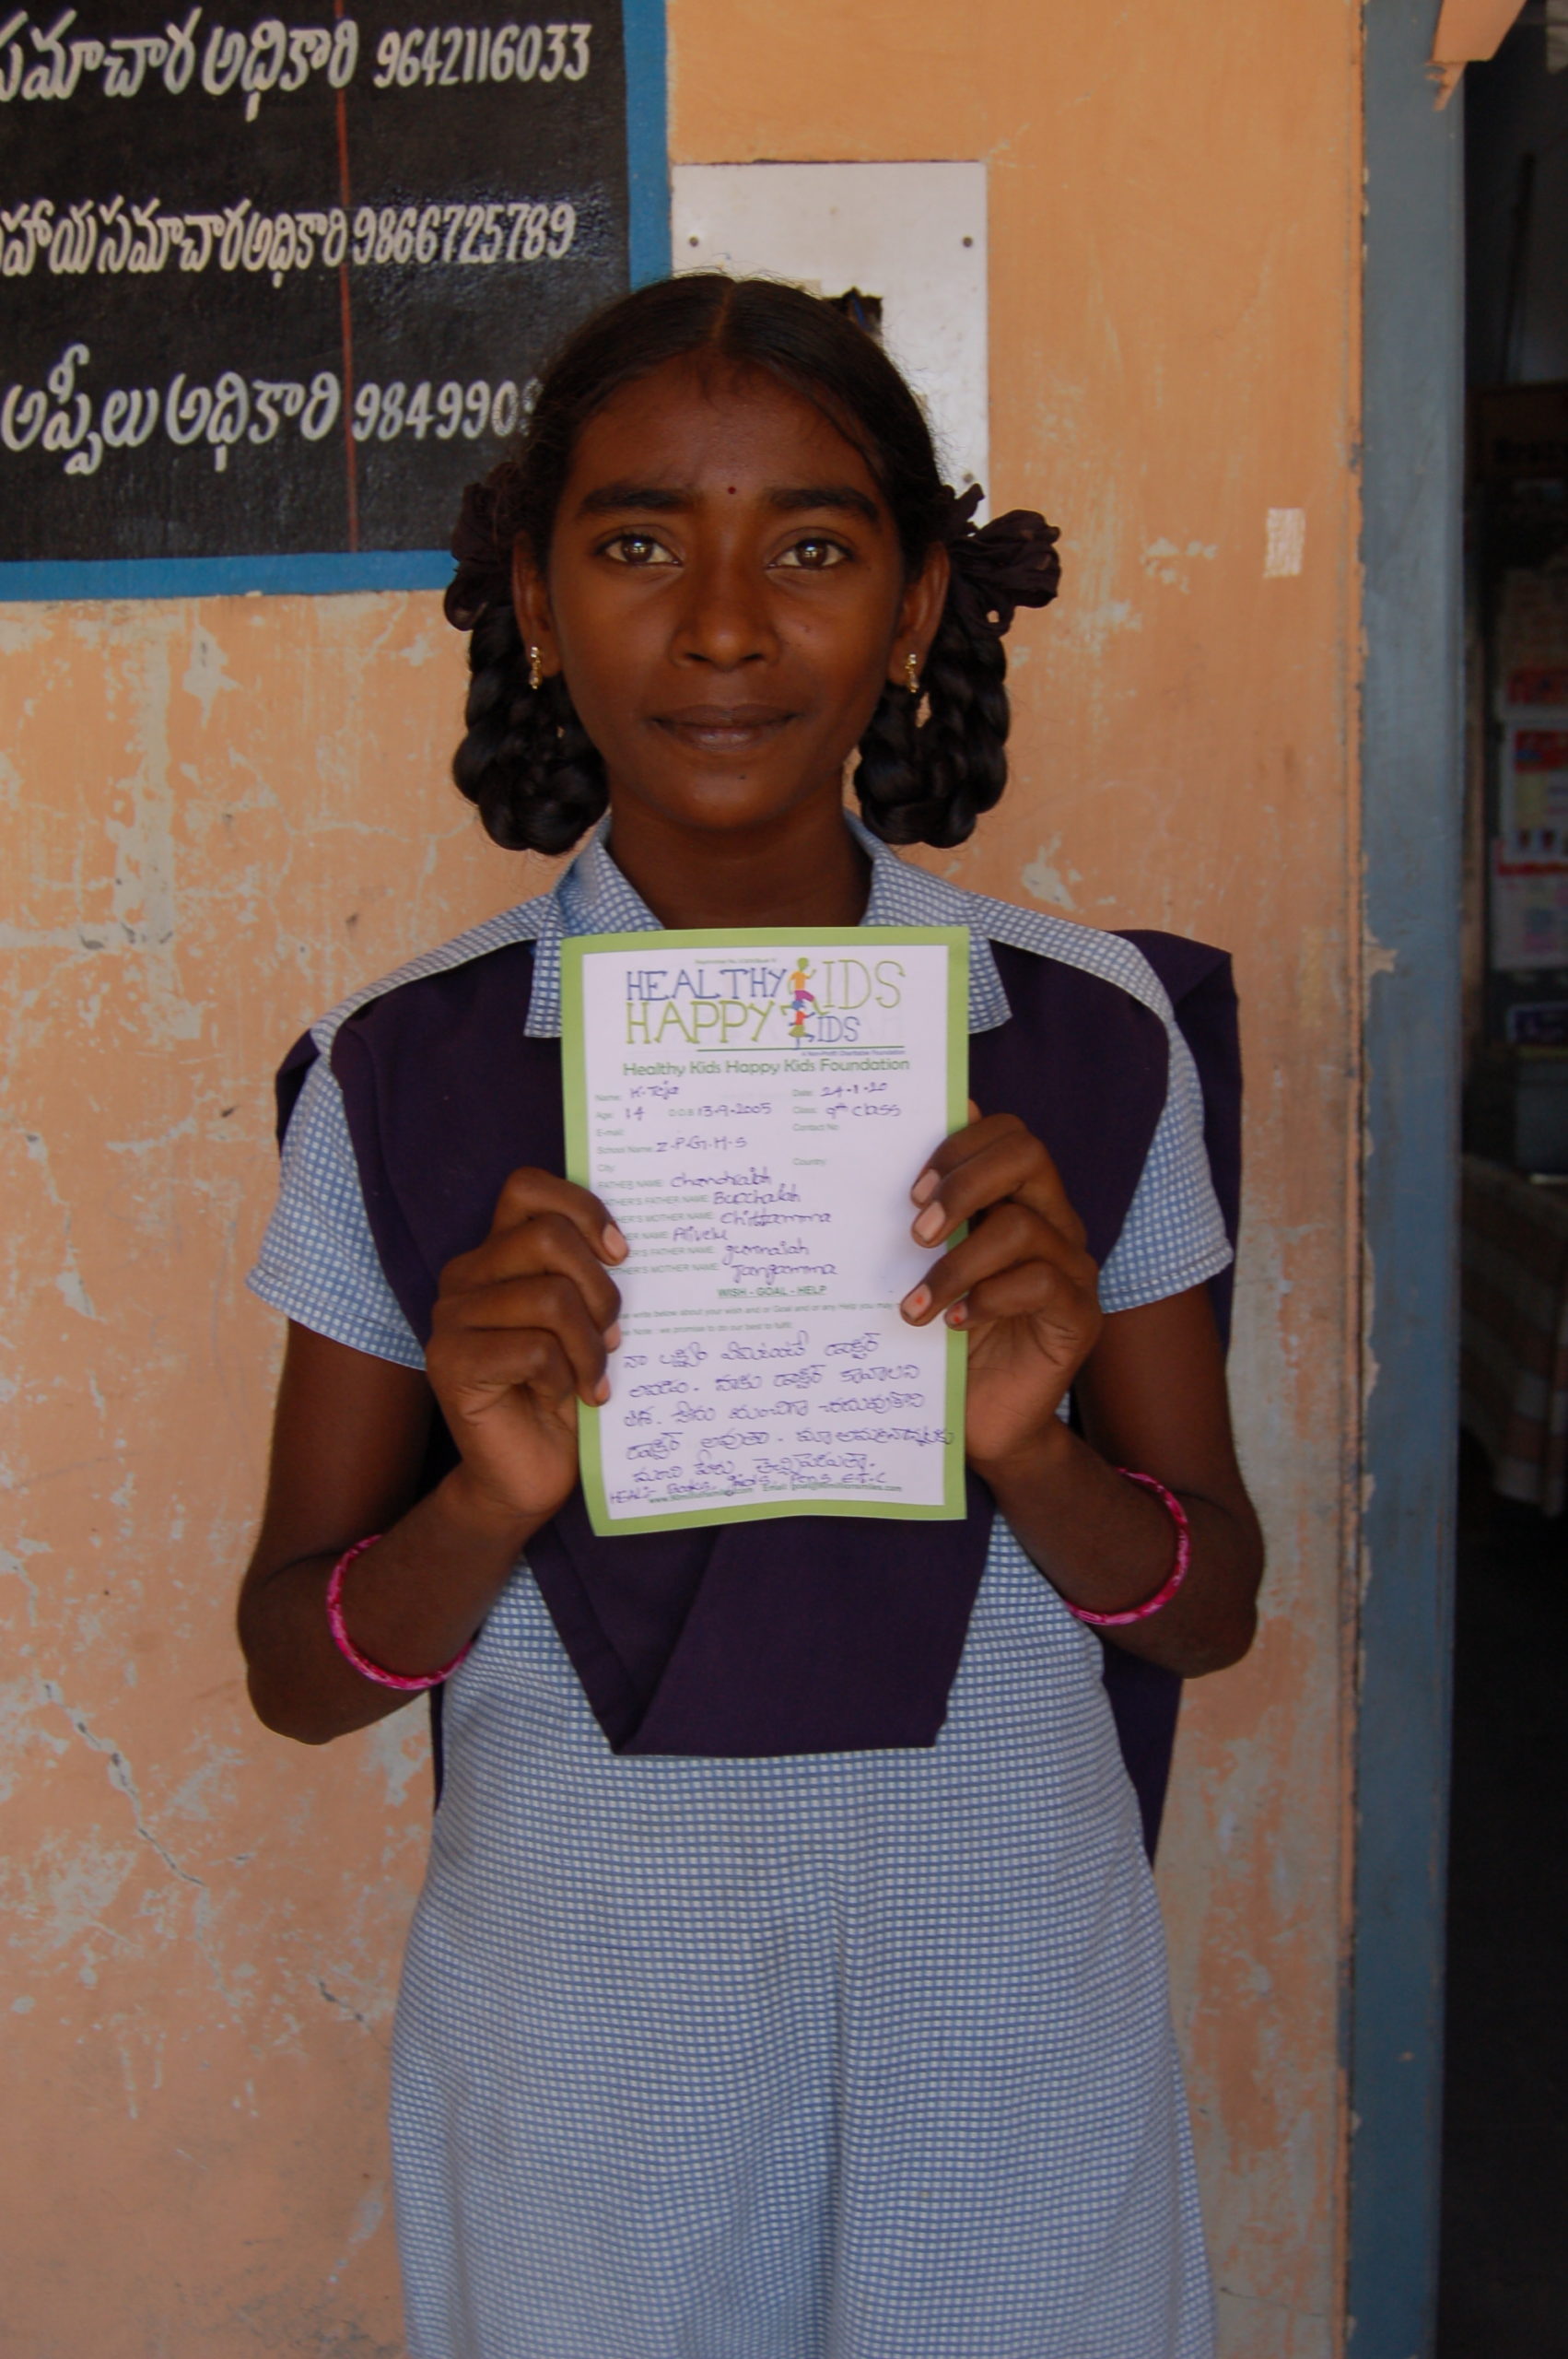 సమాచార అధికారి 9642116033
సహాయసమాచారఅధికారి 9866725789
అప్పీలు అధికారి 984990
HEALTHY KIDS
HAPPY KIDS
A Non-Profit Charitable Foundation
Healthy Kids Happy Kids Foundation
Name: K. Teja Date: 24-1-20
Age: 14 D.O.B 13-9-2005 Class: 9th class
E-mail: Contact No
School Name: Z.P.G.H.S
City Country
FATHER NAME: Chandraiah
HER'S FATHER NAME: Bucchaiah
HER'S MOTHER NAME: Chittamma
HER NAME: Alivelu
ER'S FATHER NAME: gunnaiah
HER'S MOTHER NAME: Jangamma
WISH - GOAL - HELP
write below about your wish and or Goal and or any Help you may
Note: we promise to do our best to fulfil
నా లక్ష్యం ఏమిటంటే డాక్టర్
అవడం. నాకు డాక్టర్ కావాలని
ఆశ. నేను మంచిగా చదువుకొని
డాక్టర్ అవుతా. మా అమ్మనాన్నలకు
మంచి పేరు
HELP Books, Pens E.T.C